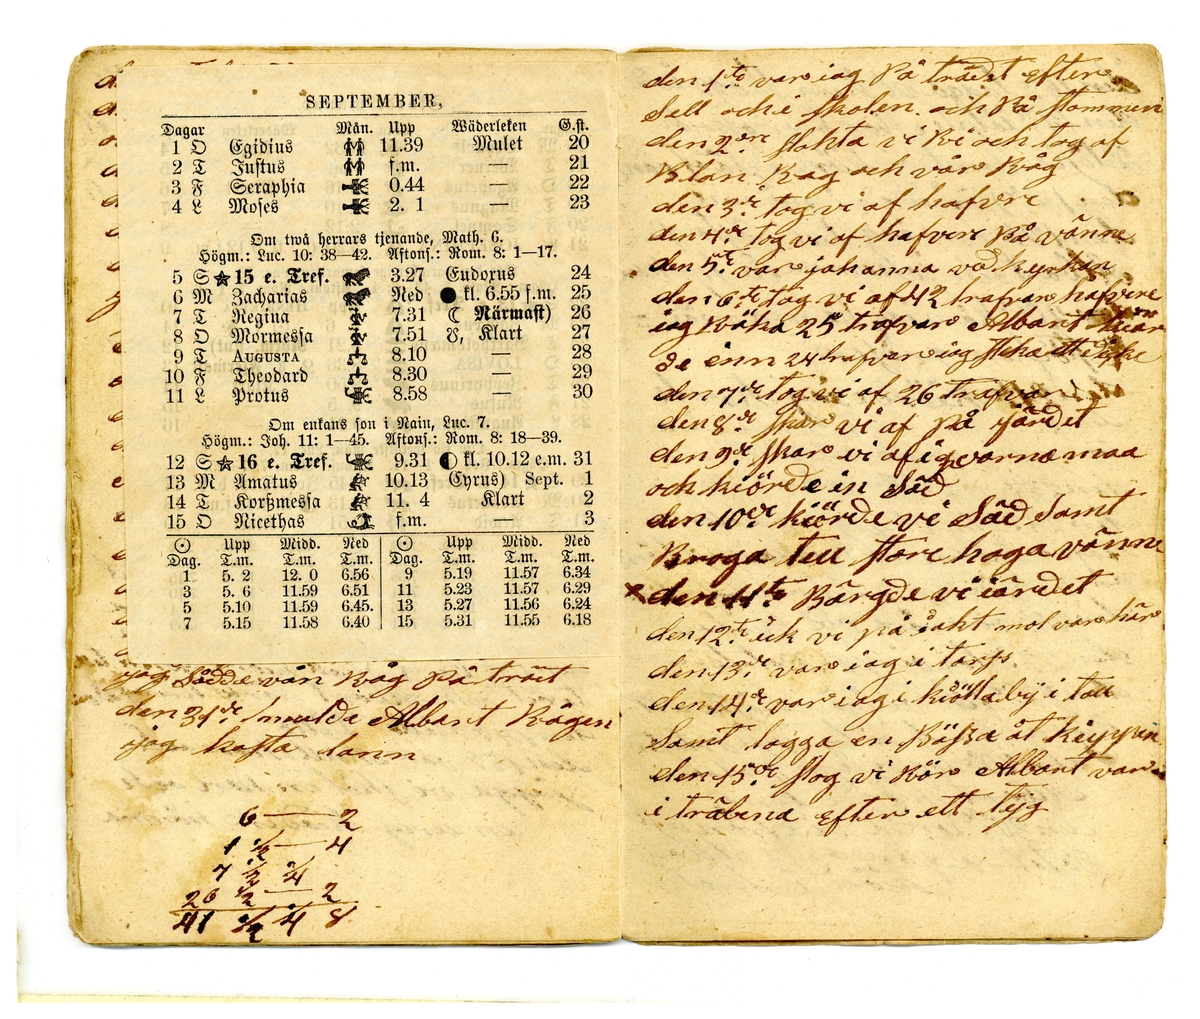 SEPTEMBER,
Dagar Mån. Upp Wäderleken G.st.
1 O Egidius 11.39 Mulet 20
2 T Justus f.m. — 21
3 F Seraphia 0.44 — 22
4 L Moses 2. 1 — 23
Om twå herrars tjenande, Math. 6.
Högm.: Luc. 10: 38—42. Aftons.: Rom. 8: 1—17.
5 S ☆ 15 e. Tref. 3.27 Eudoxus 24
6 M Zacharias Ned ● kl. 6.55 f.m. 25
7 T Regina 7.31 ☾ Närmast) 26
8 O Mormessa 7.51 ☊, Klart 27
9 T AUGUSTA 8.10 — 28
10 F Theodard 8.30 — 29
11 L Protus 8.58 — 30
Om enkans son i Nain, Luc. 7.
Högm.: Joh. 11: 1—45. Aftons.: Rom. 8: 18—39.
12 S ☆ 16 e. Tref. 9.31 ◐ kl. 10.12 e.m. 31
13 M Amatus 10.13 (Cyrus) Sept. 1
14 T Korßmessa 11. 4 Klart 2
15 O Nicethas f.m. — 3
☉ Upp Midd. Ned ☉ Upp Midd. Ned
Dag. T.m. T.m. T.m. Dag. T.m. T.m. T.m.
1 5. 2 12. 0 6.56 9 5.19 11.57 6.34
3 5. 6 11.59 6.51 11 5.23 11.57 6.29
5 5.10 11.59 6.45. 13 5.27 11.56 6.24
7 5.15 11.58 6.40 15 5.31 11.55 6.18
jag Sådde vån Råg Påträet
den 31dr smulda Albart Rågen
jag kasta lann
6 — 2
1 ½ — 4
7 ½ ¼
26 ½ — 2
41 ½ ¼ 8
den 1te var iag På trädet efter
Sell och i skolen och På stommen
den 2dre slakta vi och tog af
Råg och vår Råg
den 3de tog vi af hafvre
den 4de tog vi af hafvre På vänne
den 5te var johanna vid kyrkan
den 6te tog vi af 42 trafvar hafvere
iag Räka 25 trafvar Albart
de inn 24 trafvar iag
den 7de tog vi af 26 trafvar
den 8de skar vi af på järdet
den 9de skar vi af i qvarnemaa
och kiörde in Säd
den 10de kiörde vi Säd Samt
Kroga till store haga vänne
x den 11te Bärgde vi iärdet
den 12te ik vi på jakt mol var här
den 13de var iag i torp
den 14de var iag i kiöllaby i
Samt lagga en Bössa åt
den 15de slog vi Rör Albart var
i träbena efter ett tÿg